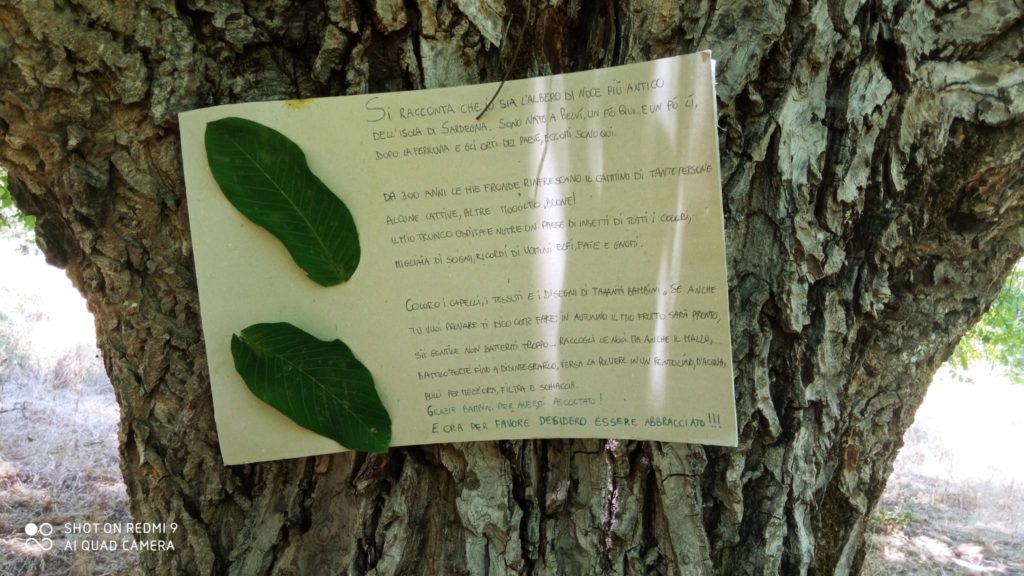 SI RACCONTA CHE IO SIA L'ALBERO DI NOCE PIÙ ANTICO
DELL'ISOLA DI SARDEGNA. SONO NATO A BELVÌ, UN PÓ QUI.. E UN PÓ LÌ,
DOPO LA FERROVIA E GLI ORTI DEL PAESE, ECCOTI SONO QUI.
DA 300 ANNI LE MIE FRONDE RINFRESCANO IL CAMMINO DI TANTE PERSONE
ALCUNE CATTIVE, ALTRE BUONE!
IL MIO TRONCO OSPITA E NUTRE UN PAESE DI INSETTI DI TUTTI I COLORI,
MIGLIAIA DI SOGNI, RICORDI DI UOMINI ELFI, FATE E GNOMI.
COLORO I CAPELLI, I TESSUTI E I DISEGNI DI TAAANTI BAMBINI. SE ANCHE
TU VUOI PROVARE TI DICO COME FARE: IN AUTUNNO IL MIO FRUTTO SARÀ PRONTO,
SII GENTILE NON BATTERMI TROPPO... RACCOGLI LE NOCI MA ANCHE IL MALLO,
BATTILO FORTE FINO A DISINTEGRARLO, VERSA LA POLVERE IN UN PENTOLINO D'ACQUA,
BOLLI PER MEZZ'ORA, FILTRA E SCHIACCIA.
GRAZIE BAMBINI PER AVERMI ASCOLTATO!
E ORA PER FAVORE DESIDERO ESSERE ABBRACCIATO!!!
SHOT ON REDMI 9
AI QUAD CAMERA